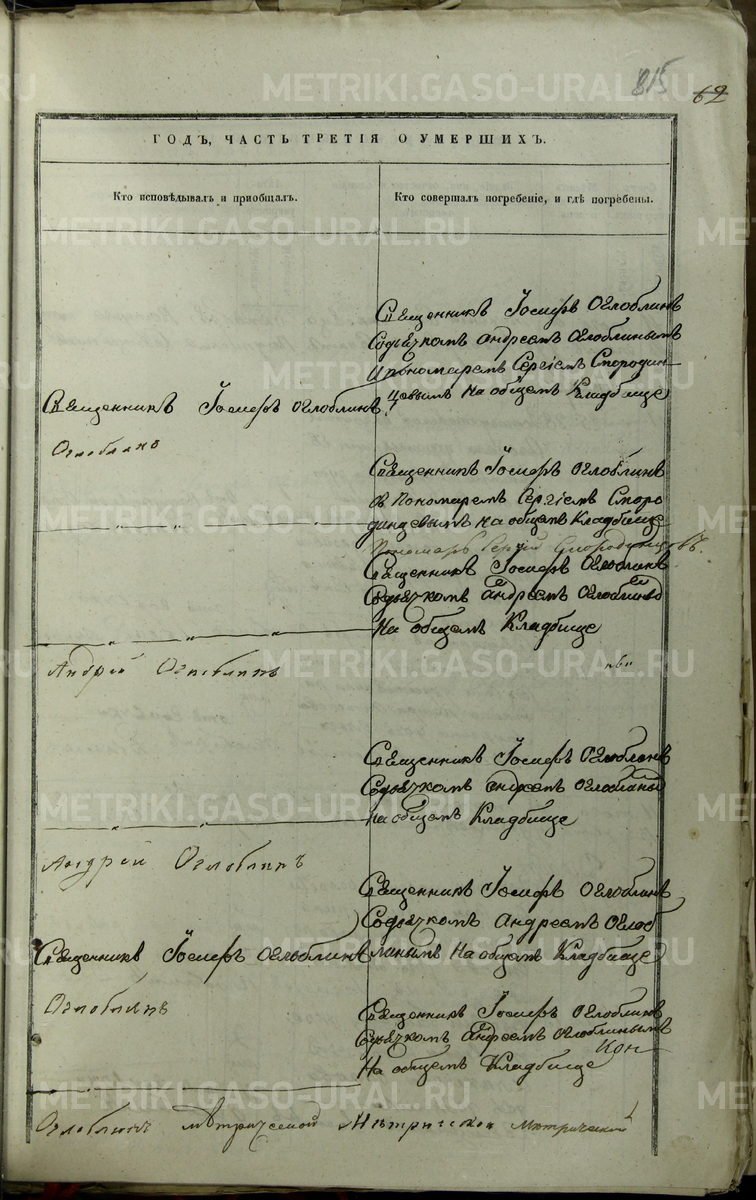 815
62
ГОДЪ, ЧАСТЬ ТРЕТІЯ О УМЕРШИХЪ.
Кто исповѣдывалъ и пріобщалъ.
Кто совершалъ погребеніе, и гдѣ погребены.
Священникъ Іосифъ Оглоблинъ
Оглоблинъ
Андрей Оглоблинъ
Андрей Оглоблинъ
Священникъ Іосифъ Оглоблинъ
Оглоблинъ
Священникъ Іосифъ Оглоблинъ
Содьячкомъ андреемъ Оглоблинымъ
Ипономаремъ Сергіемъ Смородин
цовымъ На общемъ Кладбище
Священникъ Іосифъ Оглоблинъ
съ Пономаремъ Сергіемъ Сморо
динцевымъ на общемъ Кладбище
Пономарь Сергій Смородинцовъ.
Священникъ Іосифъ Оглоблинъ
Содьячкомъ андреемъ Оглоблинъ
На общемъ Кладбище
Священникъ Іосифъ Оглоблинъ
Содьячкомъ андреемъ Оглоблины
На общемъ Кладбище
Священникъ Іосифъ Оглоблинъ
Содьячкомъ Андреемъ Оглоб
линымъ На общемъ Кладбище
Священникъ Іосифъ Оглоблинъ
Содьячкомъ Андреемъ Оглоблинымъ
На общемъ Кладбище
Оглоблинъ метрической Метрической Метрической
METRIKI.GASO-URAL.RU